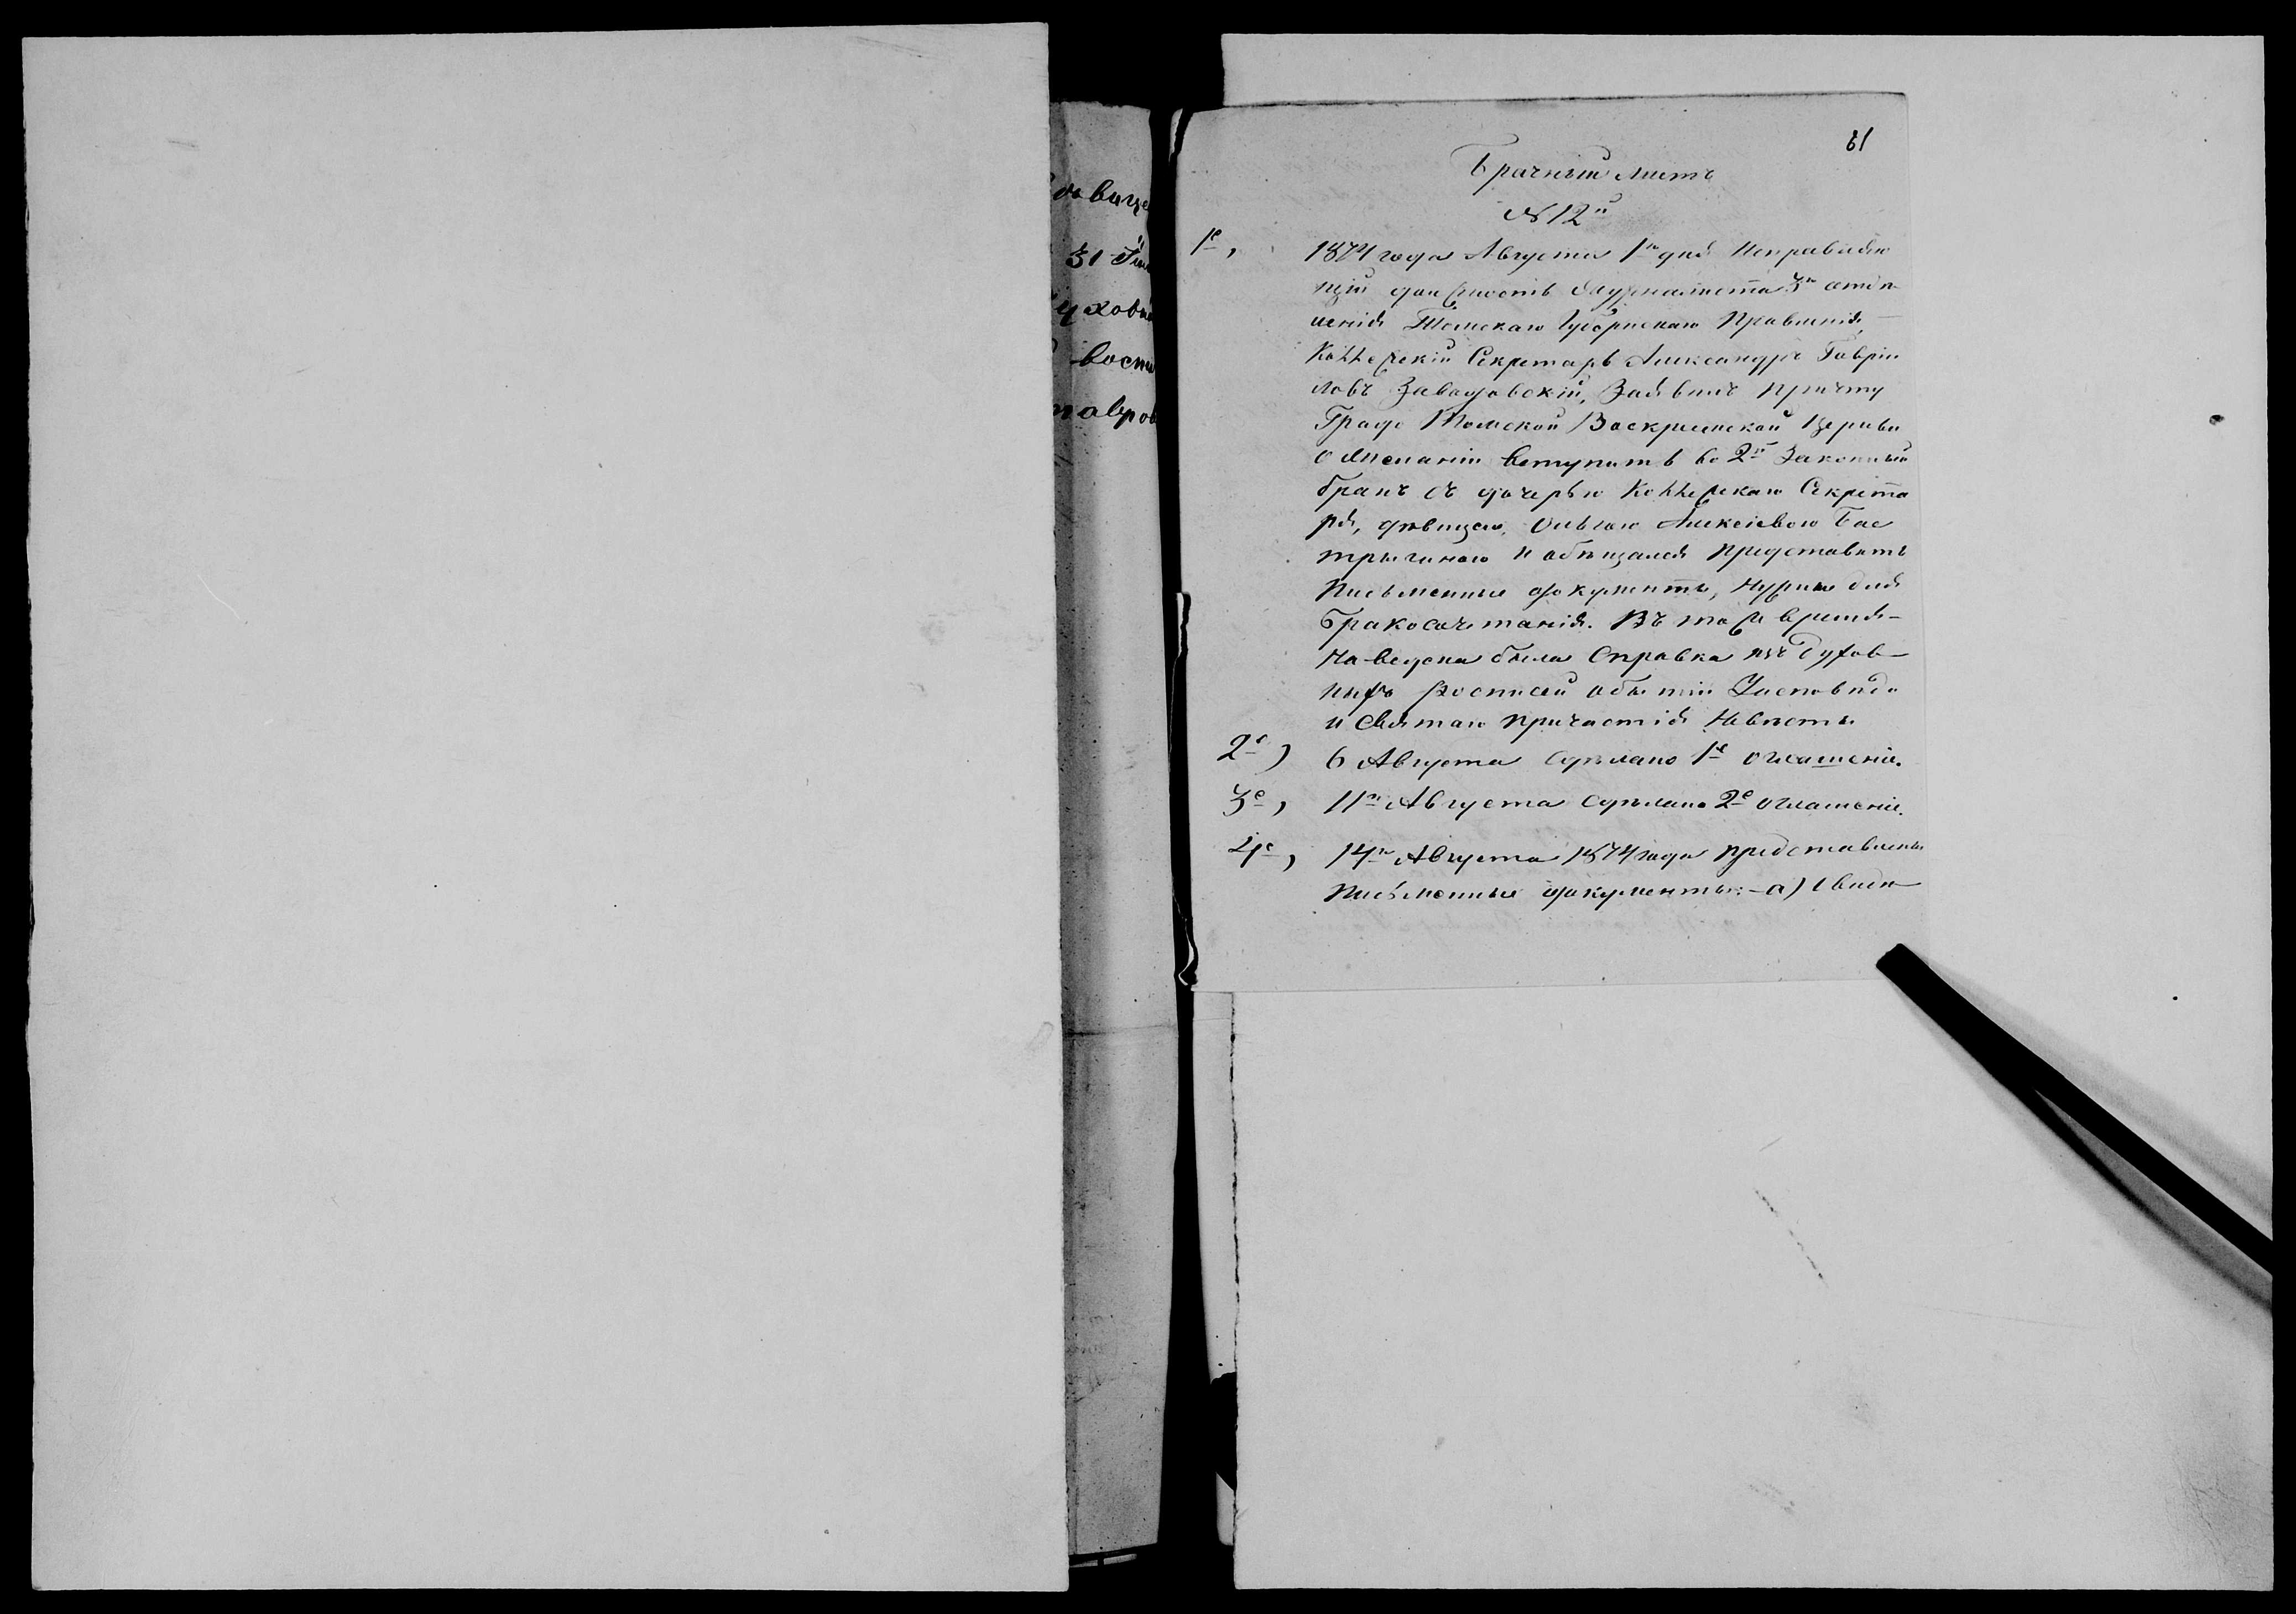 61
Брачный листъ
№ 12й
1е, 1874 года Августа 1го дня Исправляю
щій должность 3го отдѣ
ленія Томскаго Губернскаго Правленія,
Коллежскій Секретарь Александръ Гаврiи
ловъ Завадовскій, Заявилъ причту
Градо Томской Воскресенской Церкви
о желаніи вступить во 2й Законный
бракъ съ дочерью Коллежскаго Секрета
ря, дѣвицею, Ольгою Алексіевою Бас
трыгиною и обѣщался представить
письменные документы, нужные для
бракосочетанія. Въ тоже время
наведена была Справка изъ Духов-
ныхъ росписей объ Исповѣди
и Святаго причастія Невѣсты.
2е) 6 Августа сдѣлано 1е оглашеніе.
3е, 11го Августа сдѣлано 2е оглашеніе.
4е, 14го Августа 1874 года представлены
письменные документы:- а) Свидѣ-
31